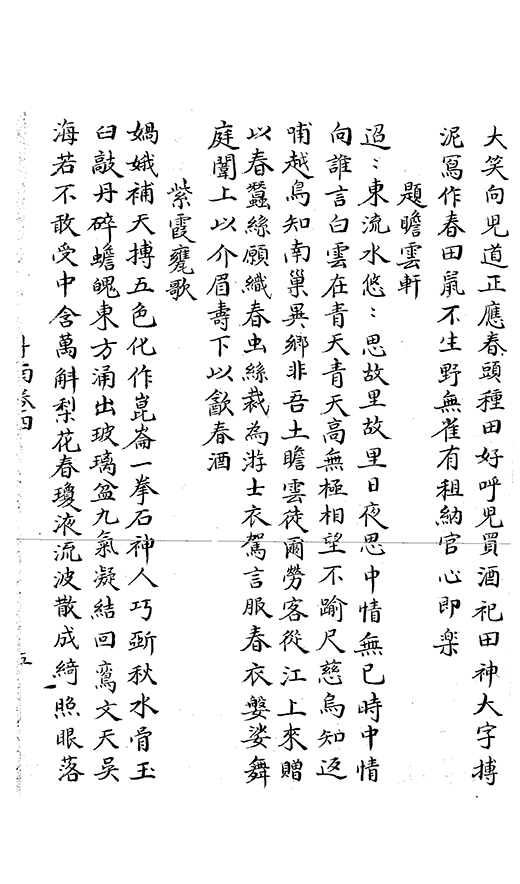 大笑向児道正應春頭種田好呼児買酒祀田神大字摶
泥冩作春田鼠不生野無雀有租納官心即楽
題瞻雲軒
迢〻東流水悠〻思故里故里日夜思中情無已時中情
向誰言白雲在青天青天高無極相望不踰尺慈烏知返
哺越鳥知南巢異鄉非吾土瞻雲徒爾勞客從江上來贈
以春蠶絲願織春虫絲裁為游士衣駕言服春衣婆娑舞
庭闈上以介眉壽下以歙春酒
紫霞甕歌
媧娥補天摶五色化作崑崙一拳石神人巧斲秋水骨玉
臼敲丹碎蟾魄東方涌出玻璃盆九氣凝結回鸞文天吳
海若不敢受中含萬斛梨花春瓊液流波散成綺照眼落
卷四
五